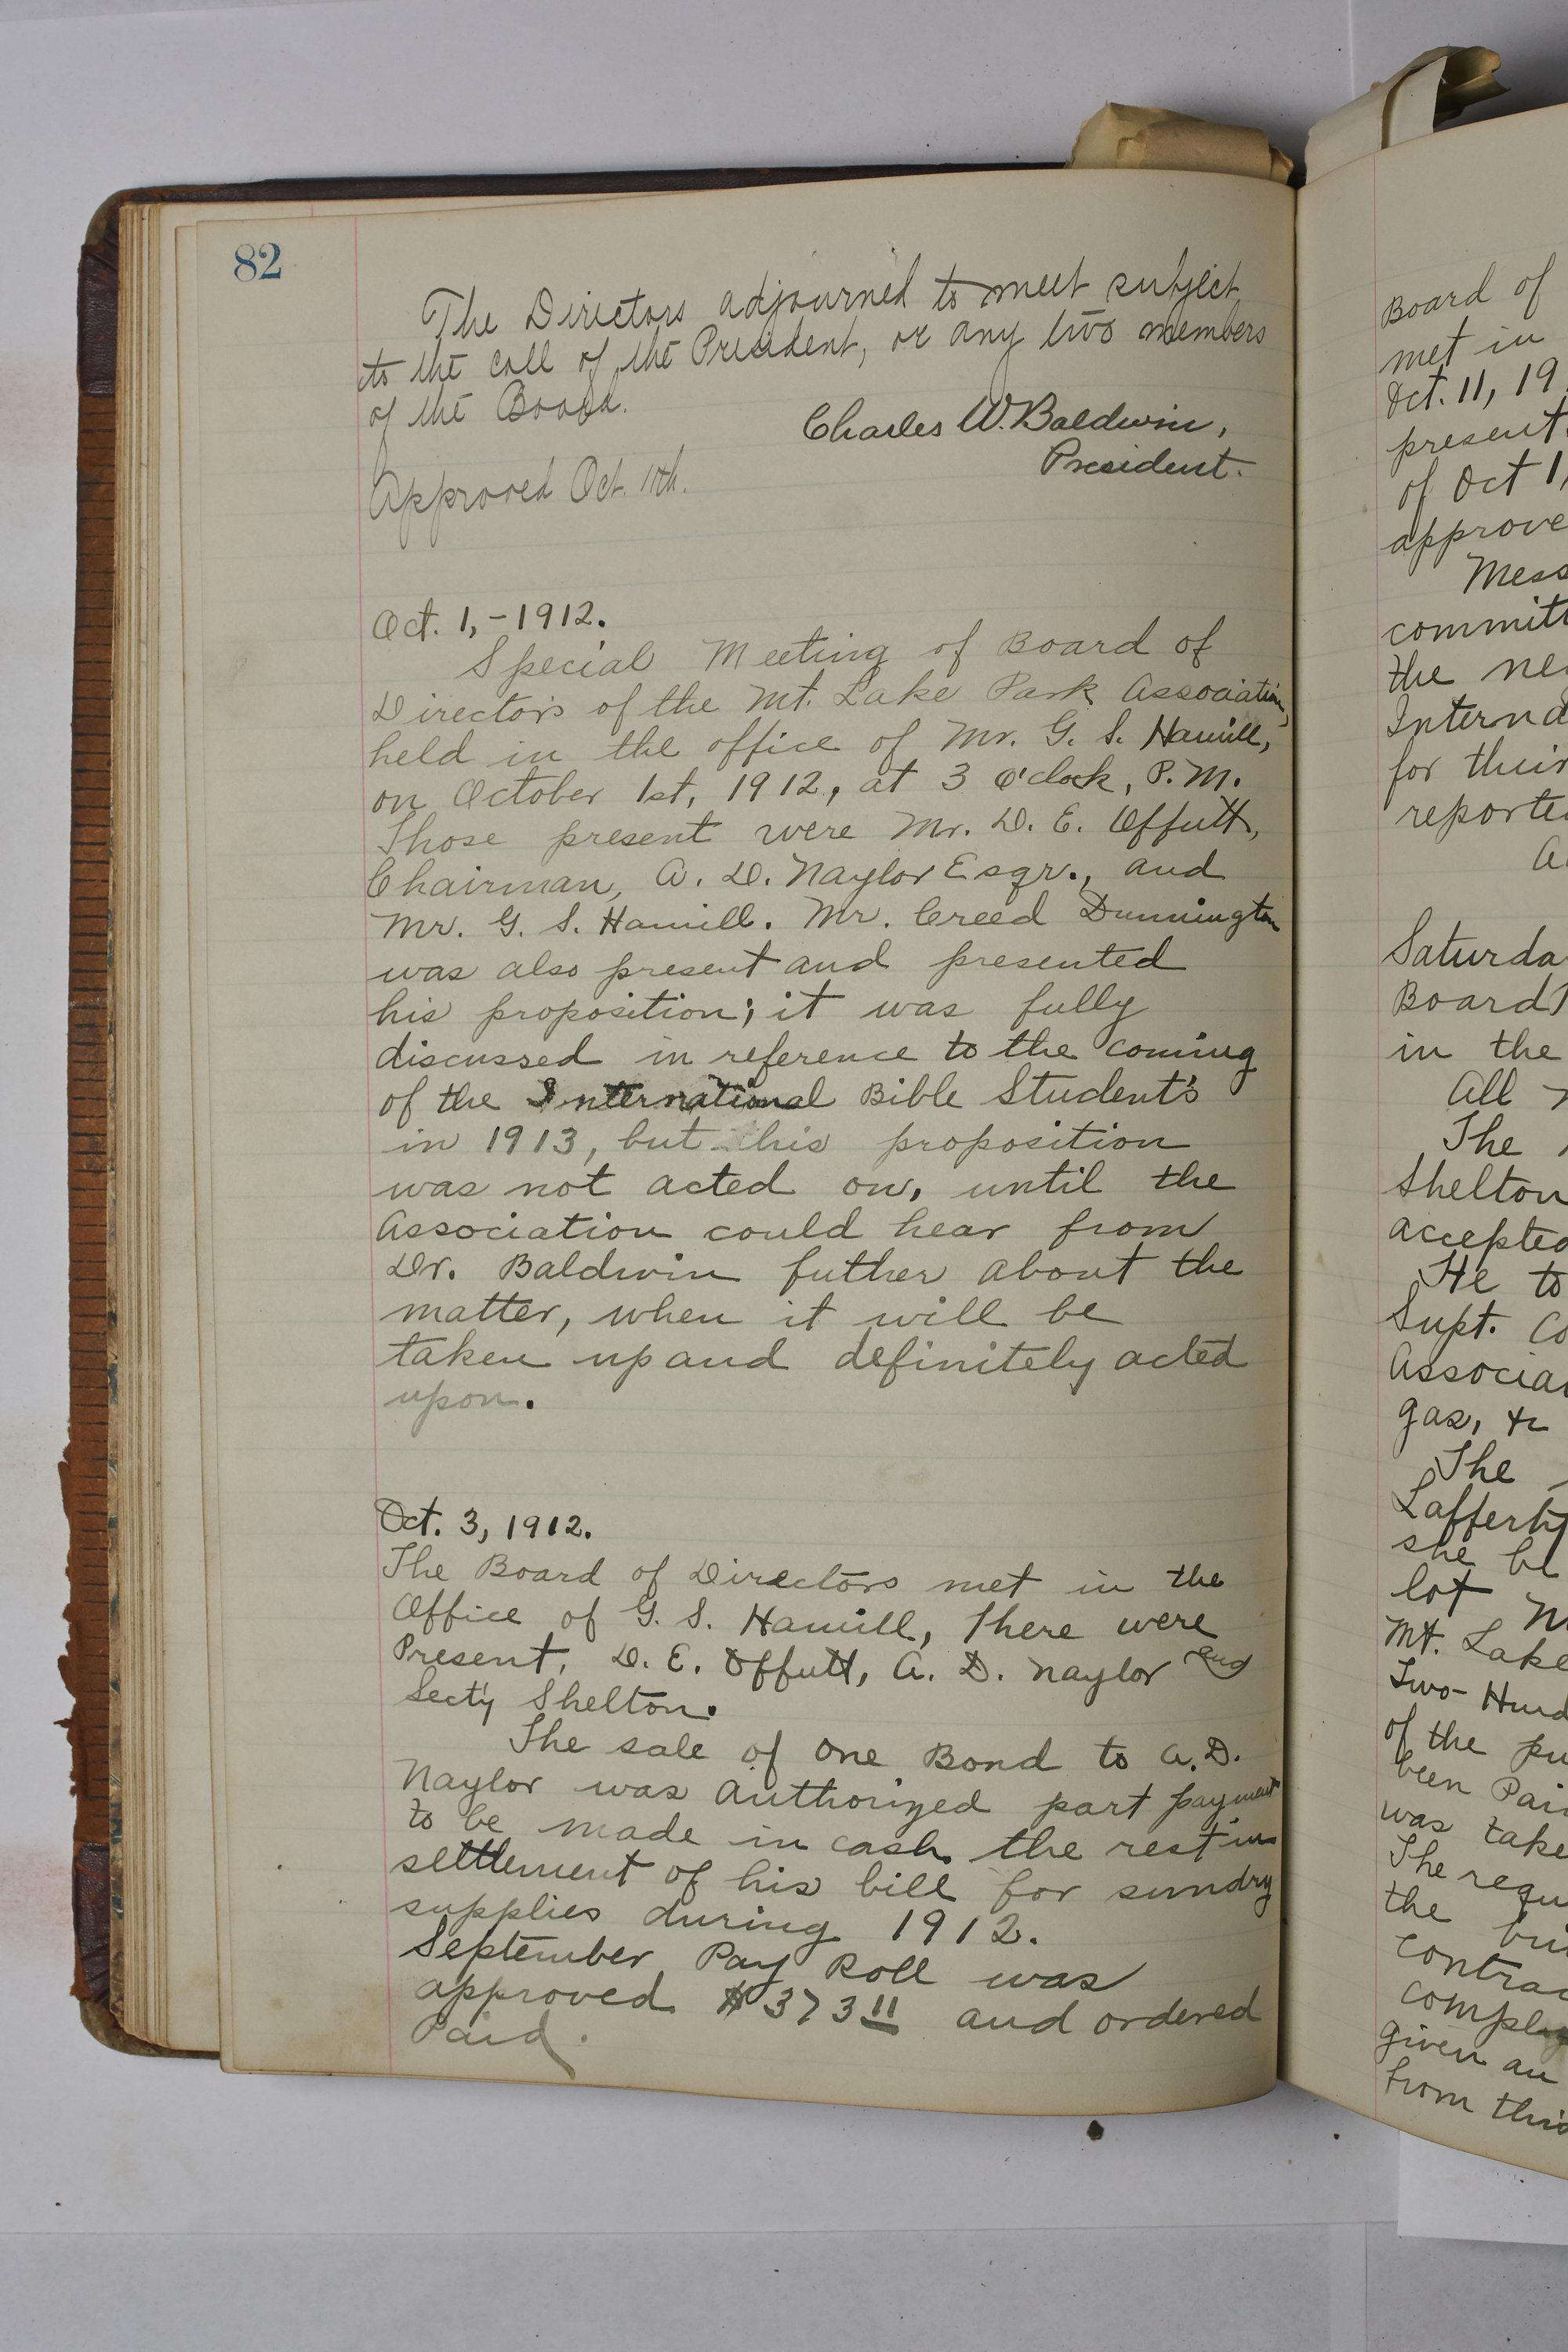 82
The Directors adjourned to meet subject
to the call of the President, or any two members
of the Board.
Charles W. Baldwin,
President.
Approved Oct. 11th.
Oct. 1, - 1912.
Special Meeting of Board of
Director's of the Mt. Lake Park Association,
held in the office of Mr. G. S. Hamill,
on October 1st, 1912, at 3 o'clock, P.M.
Those present were Mr. D. E. Offutt,
Chairman, A. D. Naylor Esqr., and
Mr. G. S. Hamill. Mr. Creed Dunnington
was also present and presented
his proposition; it was fully
discussed in reference to the coming
of the International Bible Student's
in 1913, but this proposition
was not acted on, until the
Association could hear from
Dr. Baldwin futher about the
matter, when it will be
taken up and definitely acted
upon.
Oct. 3, 1912.
The Board of Directors met in the
Office of G. S. Hamill, There were
Present, D. E. Offutt, A. D. Naylor and
Sect'y Shelton.
The sale of One Bond to A. D.
Naylor was Authorized part payment
to be made in cash the rest in
settlement of his bill for sundry
supplies during 1912.
September Pay Roll was
approved $373 11 and ordered
Paid.
Board of
met in
Oct. 11, 19
present
of Oct 1,
approve
Mess
committ
the ne
Interna
for their
reporte
A
Saturda
Board
in the
All
The
Shelton
accepted
He to
Supt. Co
Associa
gas, &c
The
Laffert
she be
lot N
Mt. Lake
Two-Hund
of the pu
been Pai
was take
The requ
the bui
contrac
comple
given an
from this